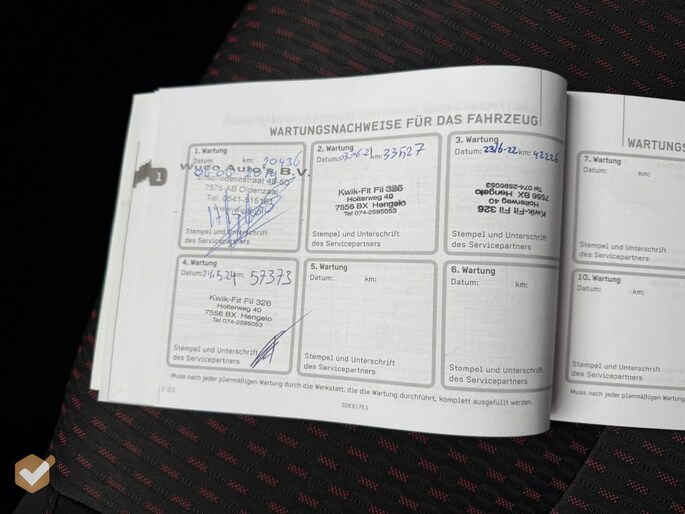 WARTUNGSNACHWEISE FÜR DAS FAHRZEUG
1
1. Wartung
Datum: km: 20436
Auto's B.V.
7575 AB Oldenzaal
Tel. 0541-515165
Stempel und Unterschrift
des Servicepartners
2. Wartung
Datum: km: 33527
Kwik-Fit Fil 326
Holterweg 40
7556 BX Hengelo
Tel 074-2595053
Stempel und Unterschrift
des Servicepartners
3. Wartung
Datum: 23/6-22 km: 42226
Kwik-Fit Fil 326
Holterweg 40
7556 BX Hengelo
Tel 074-2595053
Stempel und Unterschrift
des Servicepartners
4. Wartung
Datum: 24.5.24 km: 57373
Kwik-Fit Fil 326
Holterweg 40
7556 BX Hengelo
Tel 074-2595053
Stempel und Unterschrift
des Servicepartners
5. Wartung
Datum: km:
Stempel und Unterschrift
des Servicepartners
6. Wartung
Datum: km:
Stempel und Unterschrift
des Servicepartners
Muss nach jeder planmäßigen Wartung durch die Werkstatt, die die Wartung durchführt, komplett ausgefüllt werden.
WARTUNGS
7. Wartung
Datum: km:
Stempel und Unterschrift
des Servicepartners
10. Wartung
Datum: km:
Stempel und Unterschrift
des Servicepartners
Muss nach jeder planmäßigen Wartung